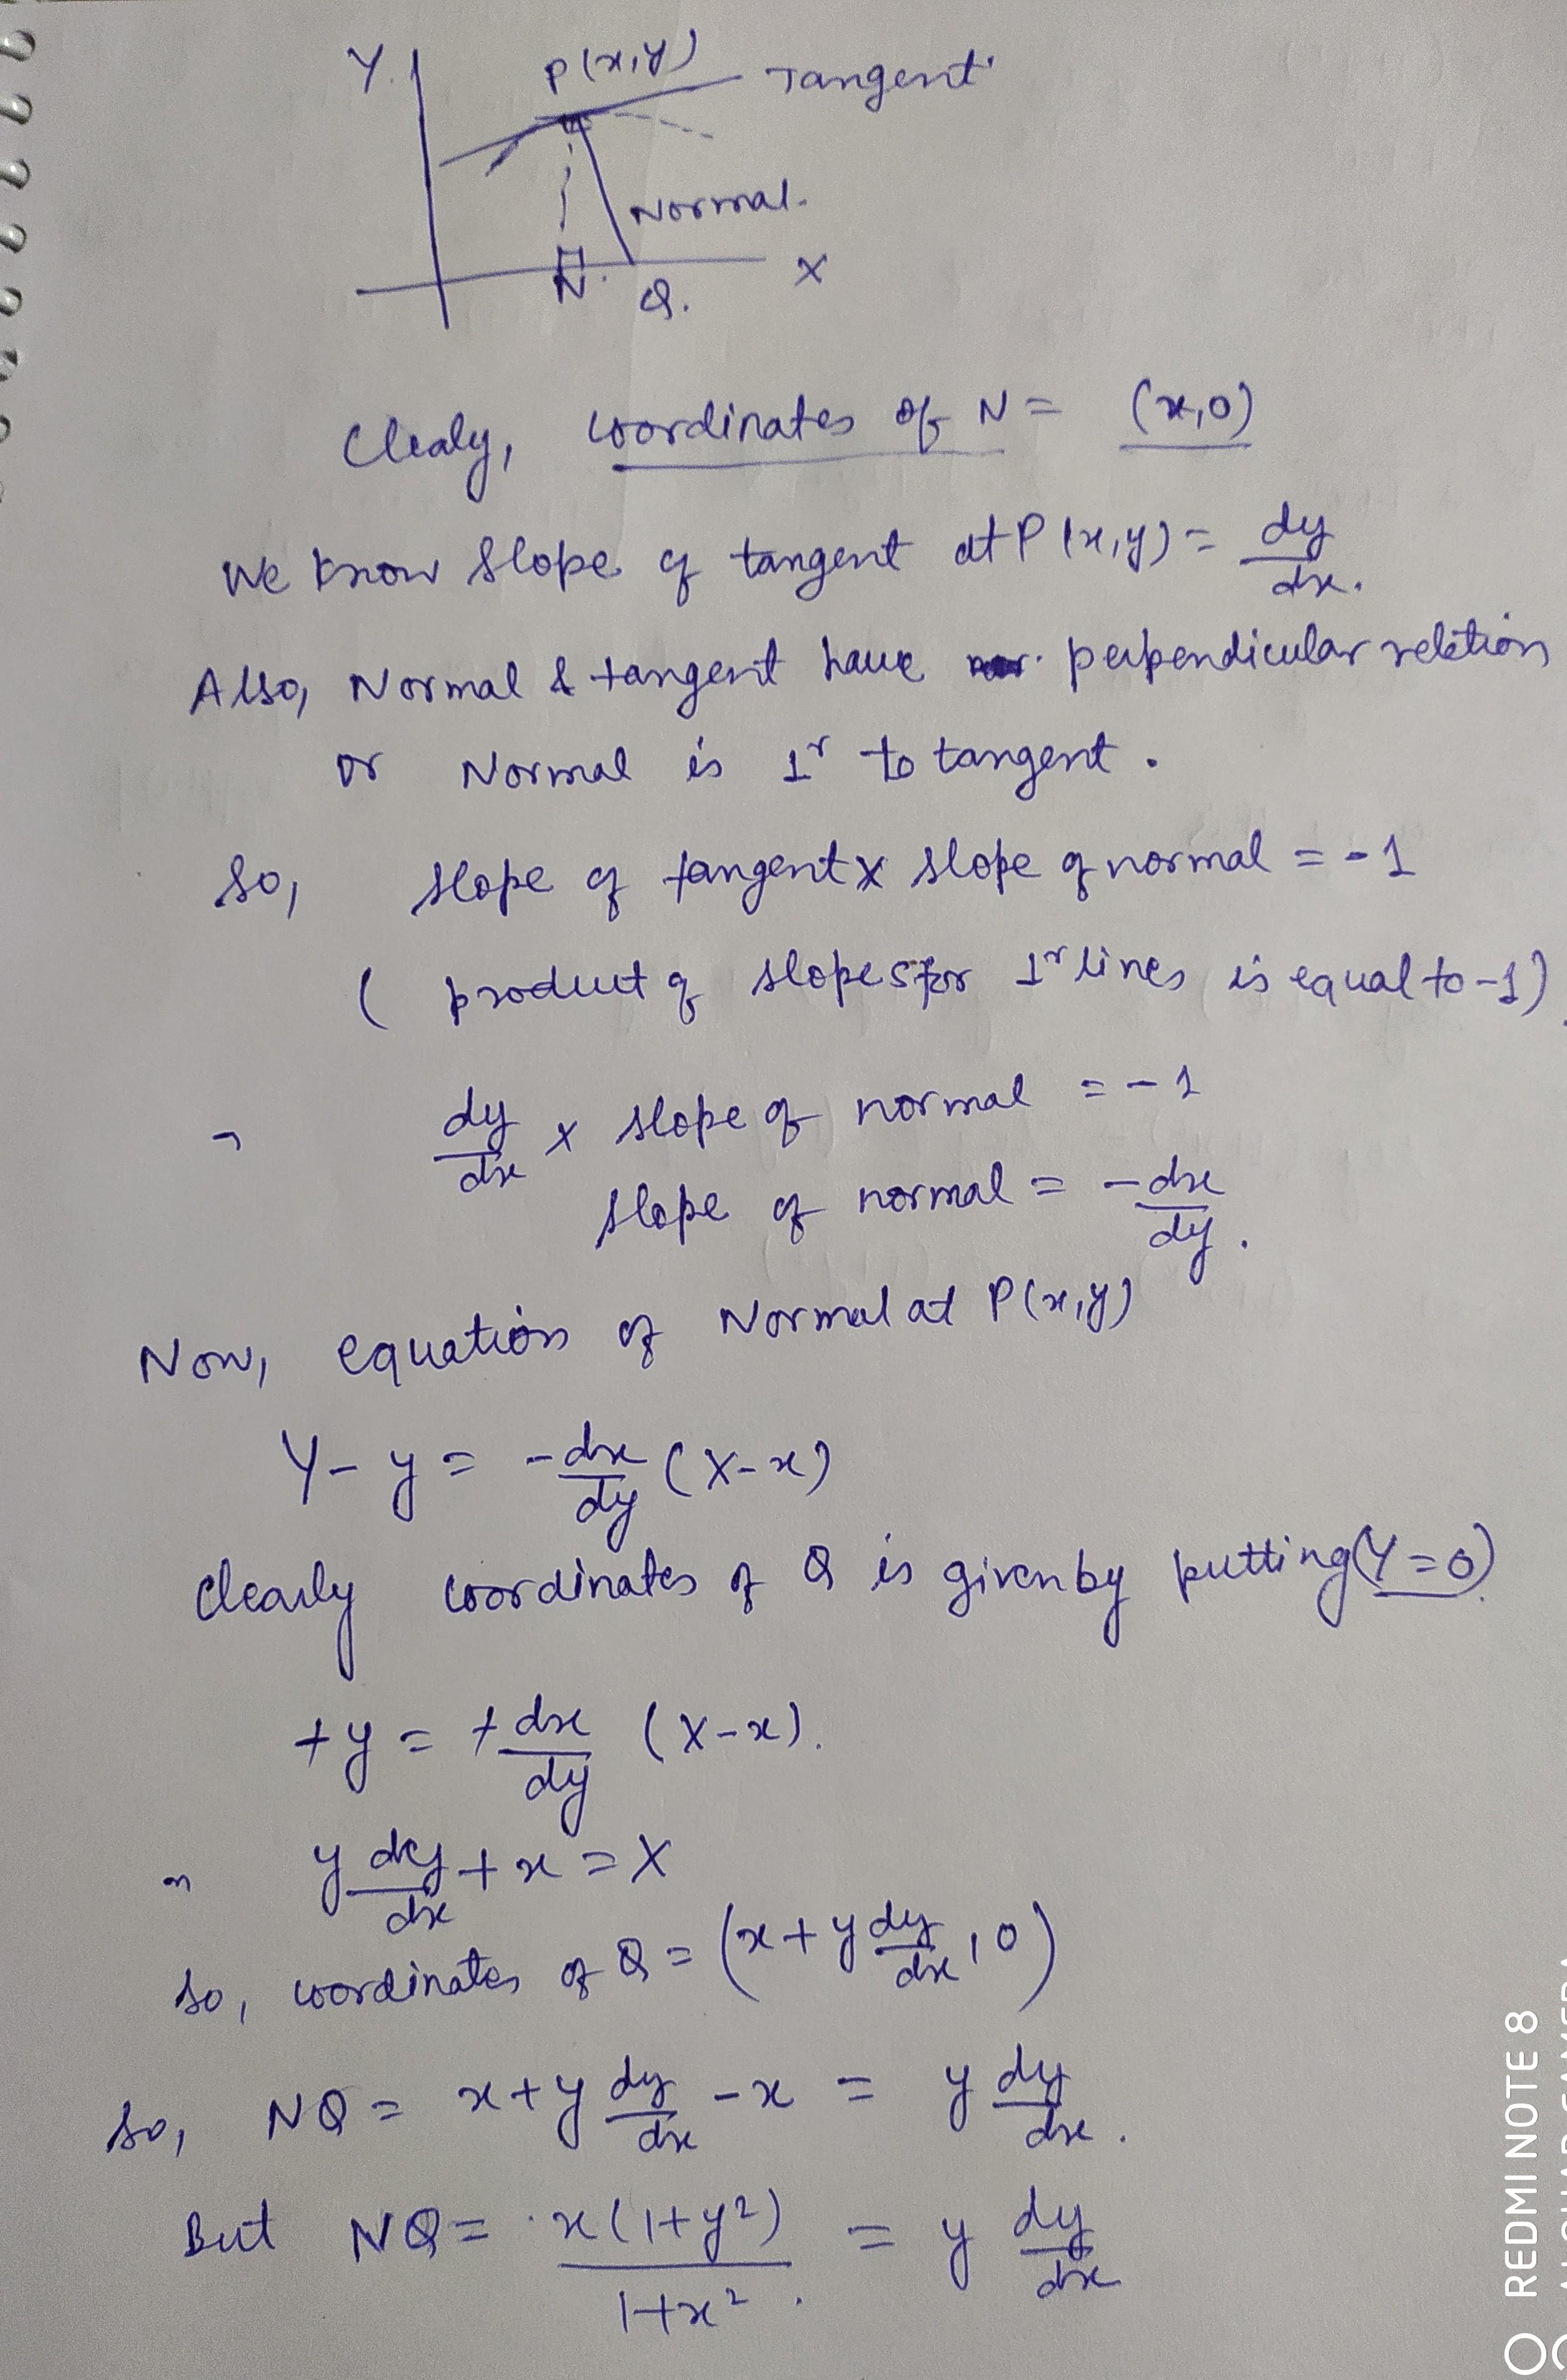 Y
P(x,y)
Tangent
Normal.
N.
Q.
X
Clealy, coordinates of N = (x,0)
We know slope of tangent at P(x,y) = dy/dx.
Also, Normal & tangent have perpendicular relation
or Normal is ⊥r to tangent.
So, slope of tangent × slope of normal = -1
( product of slopes for ⊥r lines is equal to -1)
dy/dx × slope of normal = -1
slope of normal = -dx/dy.
Now, equation of Normal at P(x,y)
Y - y = -dx/dy (X-x)
Clearly coordinates of Q is given by putting (Y=0)
+y = +dx/dy (X-x).
y dy/dx + x = X
So, coordinates of Q = (x + y dy/dx, 0)
So, NQ = x + y dy/dx - x = y dy/dx.
But NQ = x(1+y²)/1+x². = y dy/dx
REDMI NOTE 8